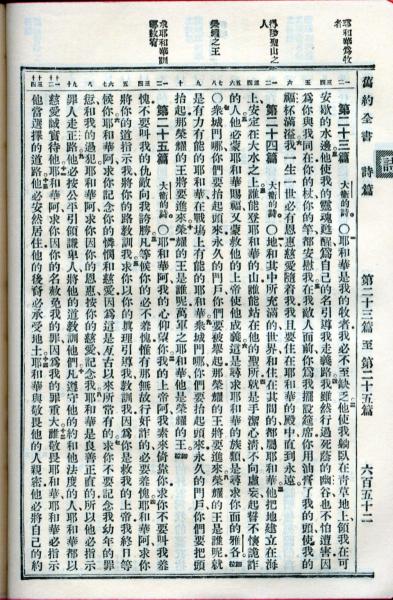 舊約全書 詩篇 第二十三篇至第二十五篇 六百五十二
詩
耶和華為牧者
得陟聖山之人
榮耀之王
求耶和華訓
第二十三篇 大衛的詩 〇耶和華是我的牧者我必不至缺乏他使我躺臥在青草地上領我在可
安歇的水邊他使我的靈魂甦醒為自己的名引導我走義路我雖然行過死蔭的幽谷也不怕遭害因
為你與我同在你的杖你的竿都安慰我在我敵人面前你為我擺設筵席你用油膏了我的頭使我的
福杯滿溢我一生一世必有恩惠慈愛隨著我我且要住在耶和華的殿中直到永遠
第二十四篇 大衛的詩 〇地和其中所充滿的世界和住在其間的都屬耶和華他把地建立在海
上安定在大水之上誰能登耶和華的山誰能站在他的聖所就是手潔心清不向虛妄起誓不懷詭詐
的人他必蒙耶和華賜福又蒙救他的上帝使他成義這是尋求耶和華的族類是尋求你面的雅各細拉
〇衆城門哪你們要抬起頭來永久的門戶你們要被舉起那榮耀的王將要進來榮耀的王是誰呢就
是有力有能的耶和華在戰場上有能的耶和華衆城門哪你們要抬起頭來永久的門戶你們要把頭
抬起那榮耀的王將要進來榮耀的王是誰呢萬軍之耶和華他是榮耀的王細拉
第二十五篇 大衛的詩 〇耶和華阿我的心仰望你我的上帝阿我素來倚靠你求你不要叫我羞
愧不要叫我的仇敵向我誇勝凡等候你的必不羞愧惟有那無故行奸詐的必要羞愧耶和華阿求你
將你的道指示我將你的路教訓我求你以你的真理引導我教訓我因為你是救我的上帝我終日等
候你耶和華阿求你記念你的憐憫和慈愛因為這是亙古以來所常有的求你不要記念我幼年的罪
愆和我的過犯耶和華阿求你因你的恩惠按你的慈愛記念我耶和華是良善正直的所以他必指示
罪人走正路他必按公平引領謙卑人將他的道教訓他們凡遵守他的約和他法度的人耶和華都以
慈愛誠實待他耶和華阿求你因你的名赦免我的罪因為我的罪重大誰敬畏耶和華耶和華必指示
他當選擇的道路他必安然居住他的後裔必承受地土耶和華與敬畏他的人親密他必將自己的約